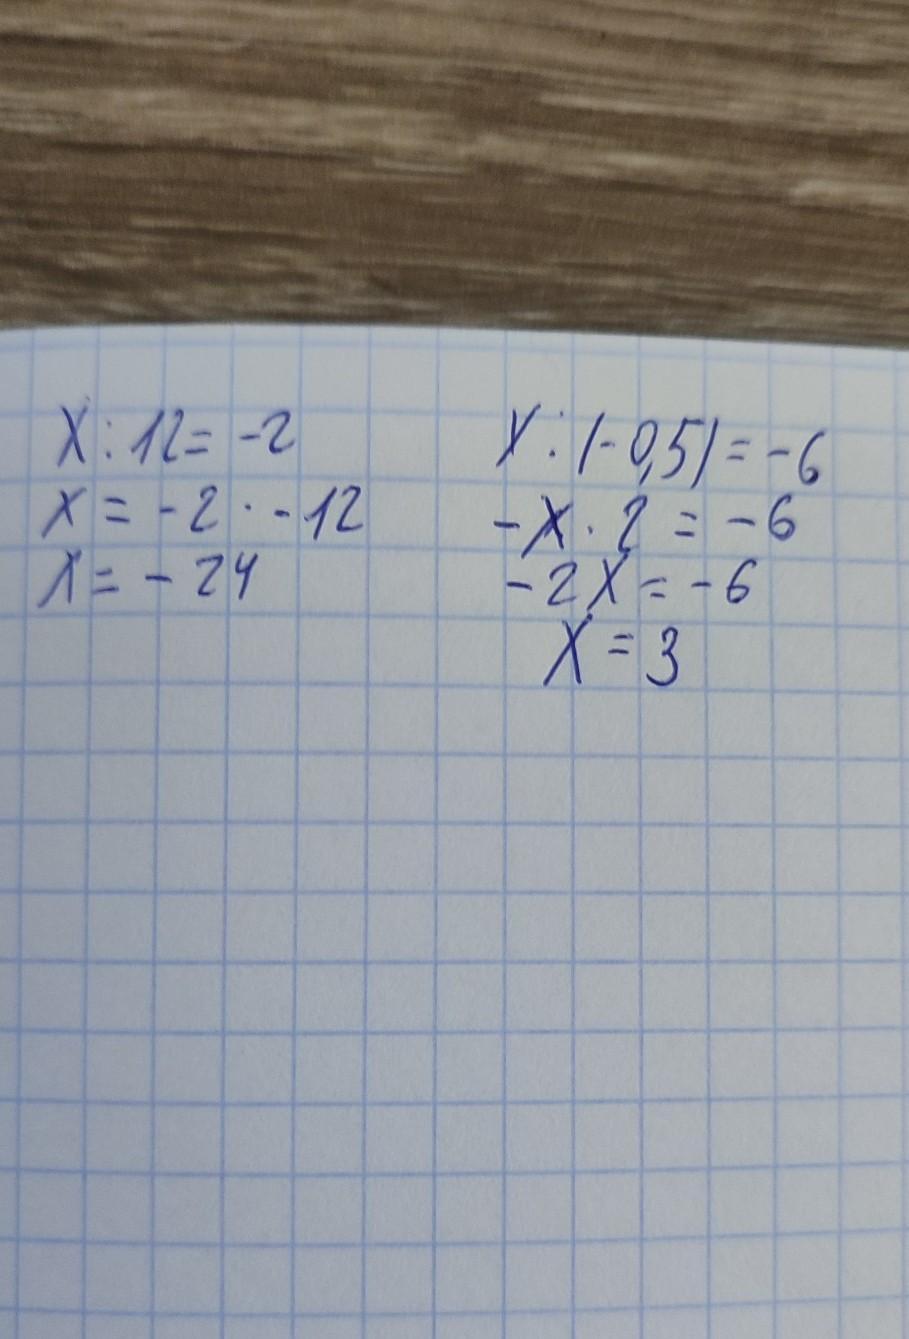 X : 12 = -2
x = -2 · -12
X = -24
X : (-0,5) = -6
-X · 2 = -6
-2X = -6
X = 3